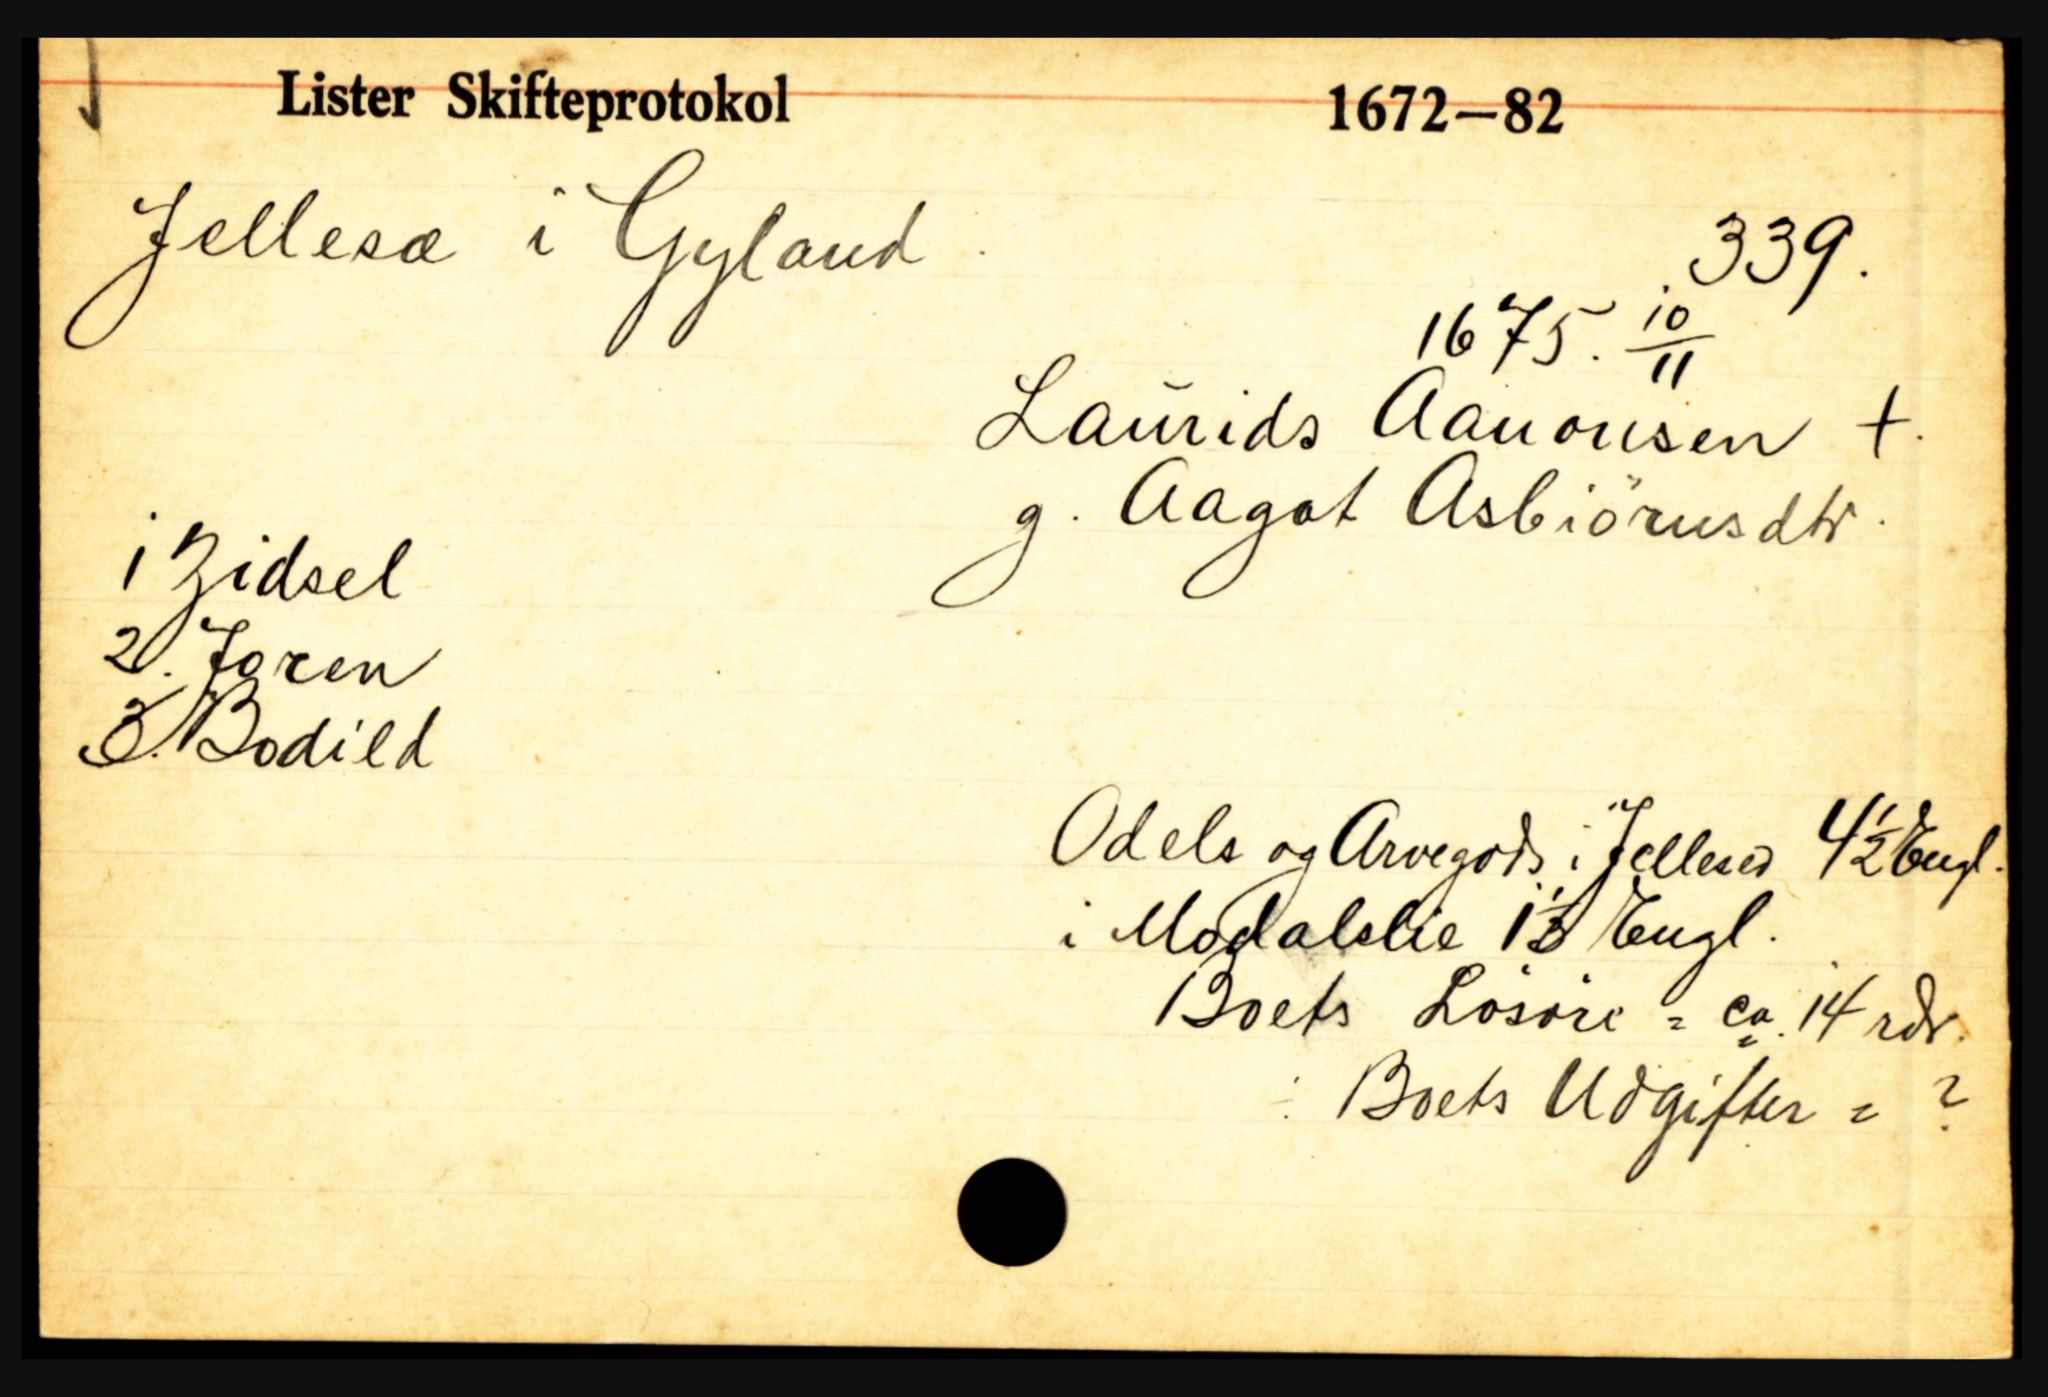 Lister Skifteprotokol 1672–82
Jellesæ i Gyland.
339.
1675. 10/11
Laurids Aanonsen +.
g. Aagot Asbiörnsdtr.
1 Zidsel
2. Joren
3. Bodild
Odels og Arvegods i Jellesæ 4½ Engl.
i Modalslie 1⅓ Engl.
Boets Lösöre = ca. 14 rdr.
÷ Boets Udgifter = ?